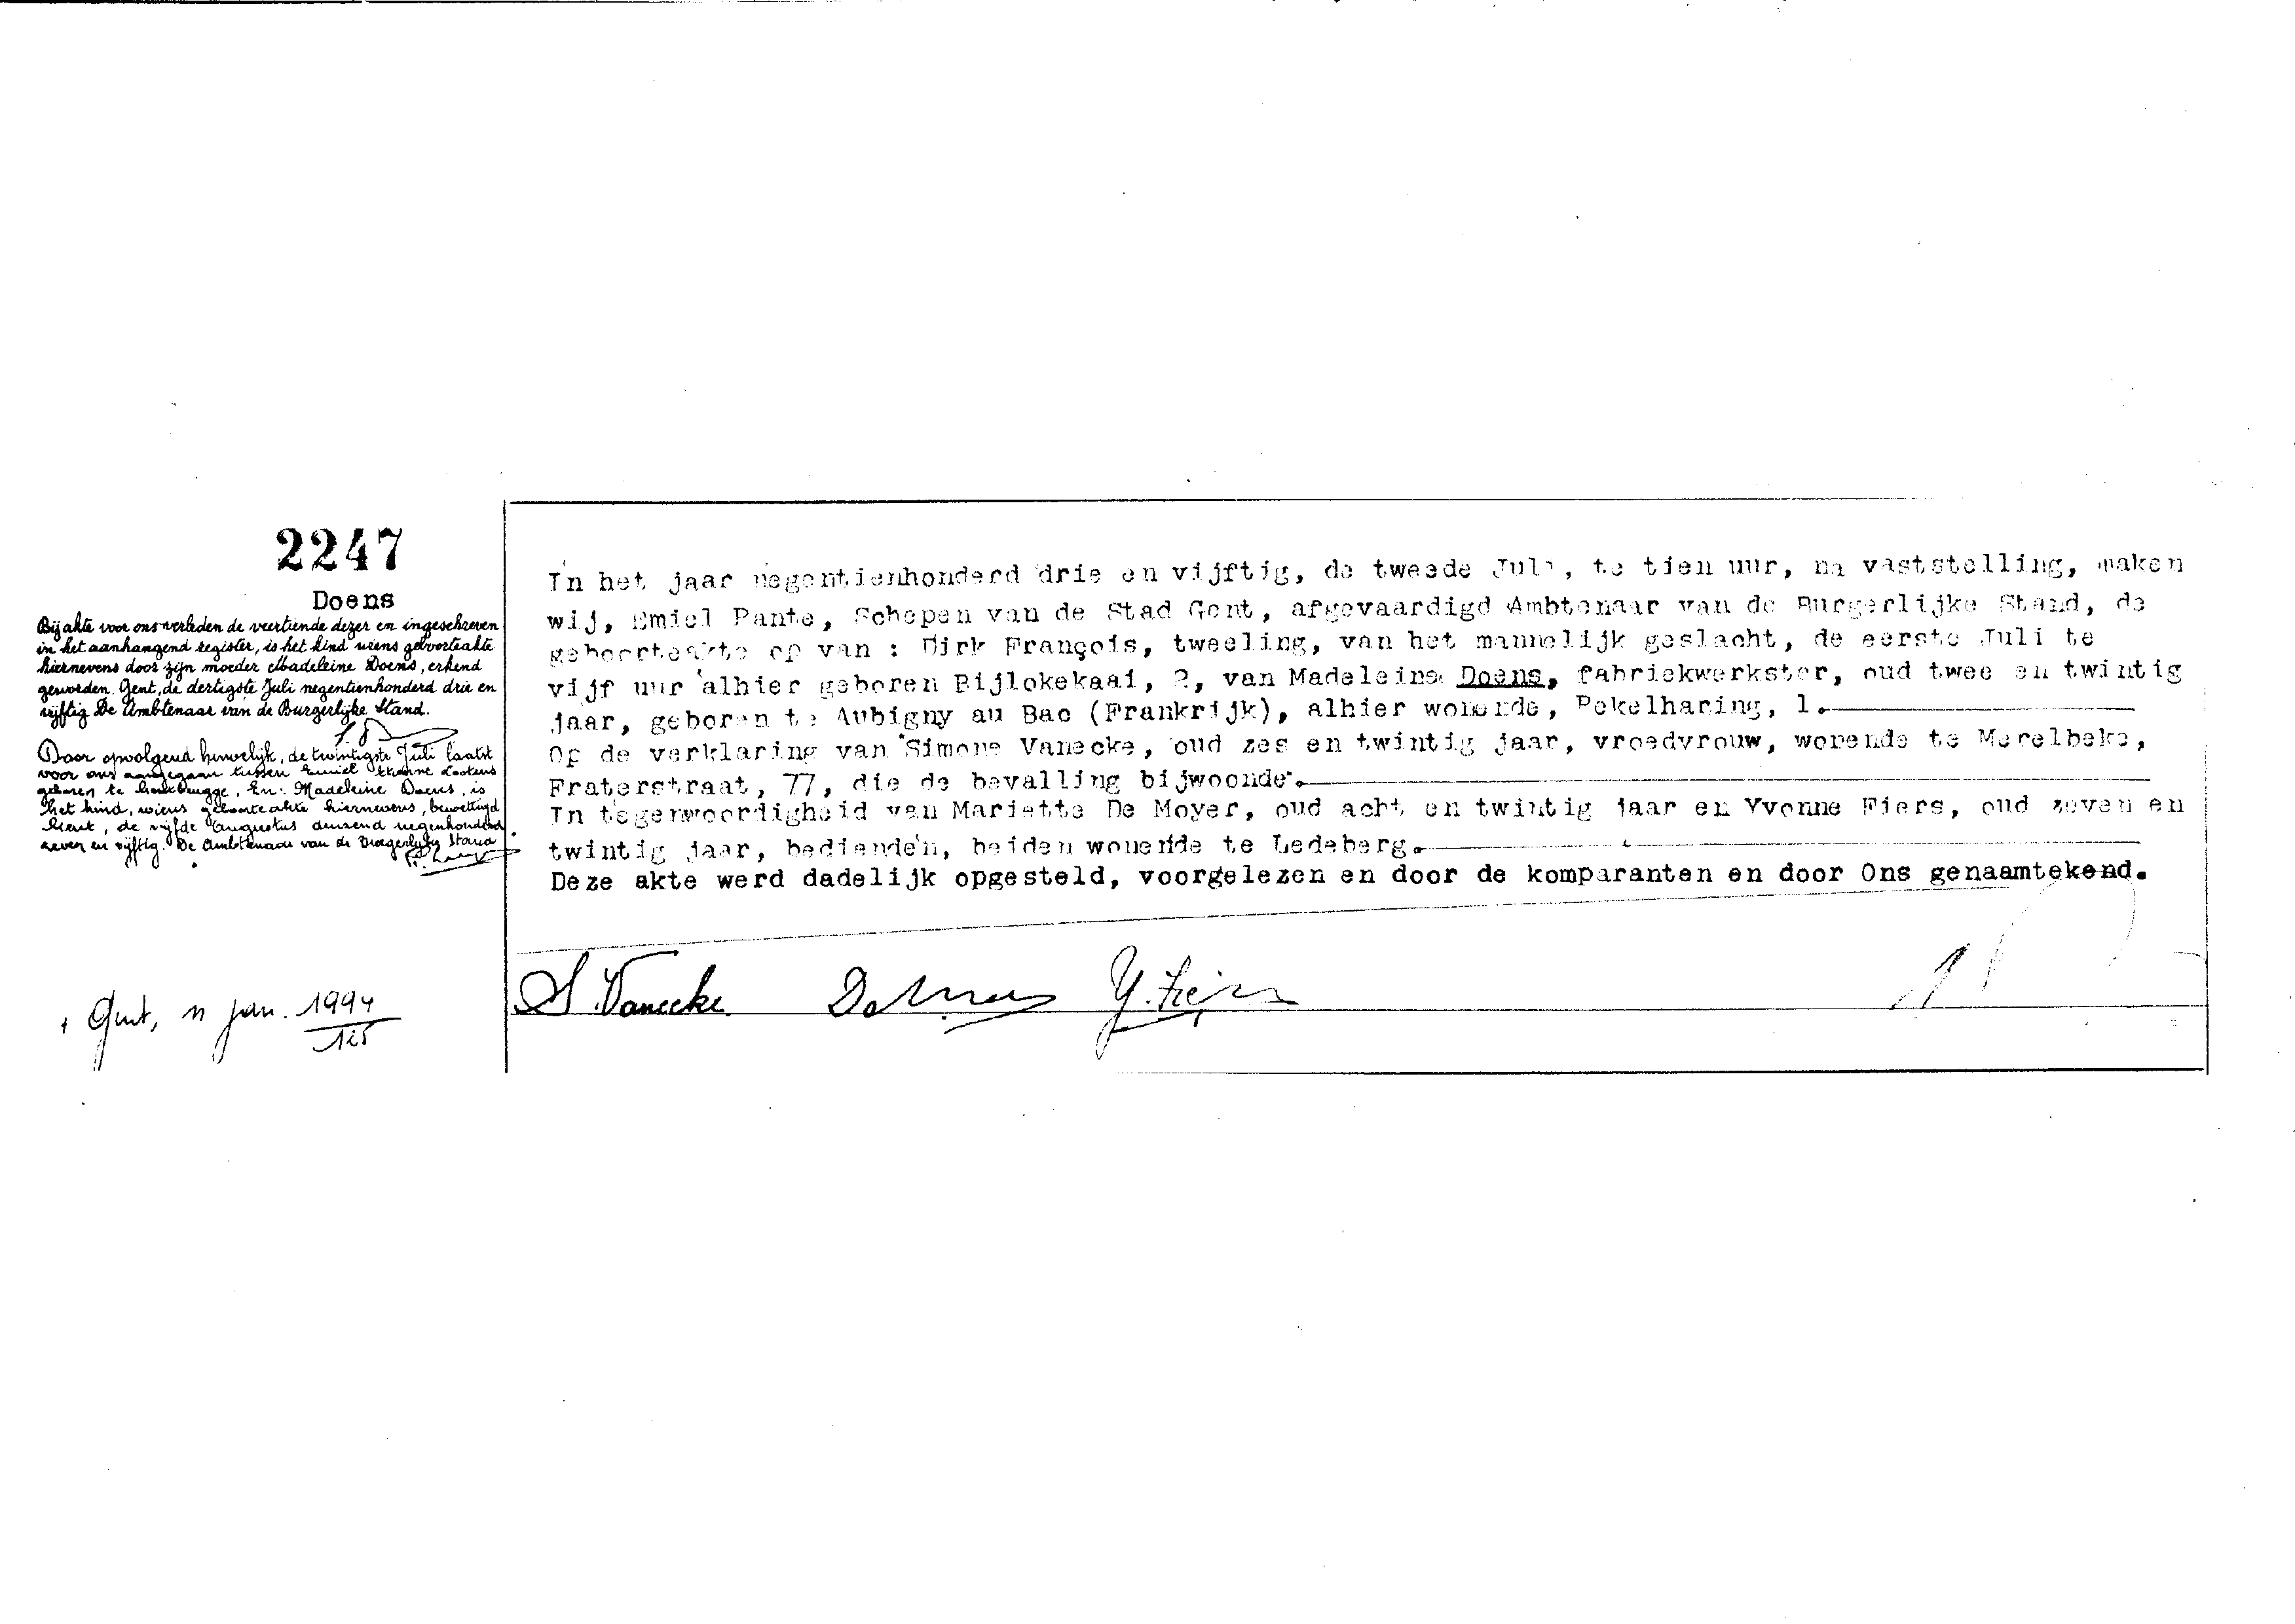 2247
Doens
Bij akte voor ons verleden de veertiende dezer en ingeschreven
in het aanhangend register, is het kind wiens geboorteakte
hiernevens door zijn moeder Madeleine Doens, erkend
geworden. Gent, de dertigste Juli negentienhonderd drie en
vijftig De Ambtenaar van de Burgerlijke Stand.
Door opvolgend huwelijk, de twintigste Juli laatst
voor ons aangegaan tussen Emiel Lootens
geboren te Gentbrugge, En: Madeleine Doens, is
het kind, wiens geboorteakte hiernevens, bewettigd
Gent, de vijfde Augustus duizend negenhonderd
zeven en vijftig. De Ambtenaar van de Burgerlijke Stand
+ Gent, 11 jan. 1994
125
In het jaar negentienhonderd drie en vijftig, de tweede Juli, te tien uur, na vaststelling, maken
wij, Emiel Pante, Schepen van de Stad Gent, afgevaardigd Ambtenaar van de Burgerlijke Stand, de
geboorteakte op van : Dirk François, tweeling, van het mannelijk geslacht, de eerste Juli te
vijf uur alhier geboren Bijlokekaai, 2, van Madeleine Doens, fabriekwerkster, oud twee en twintig
jaar, geboren te Aubigny au Bac (Frankrijk), alhier wonende, Pekelharing, 1.
Op de verklaring van Simone Vanecke, oud zes en twintig jaar, vroedvrouw, wonende te Merelbeke,
Fraterstraat, 77, die de bevalling bijwoonde.
In tegenwoordigheid van Mariette De Moyer, oud acht en twintig jaar en Yvonne Fiers, oud zeven en
twintig jaar, bedienden, beiden wonende te Ledeberg.
Deze akte werd dadelijk opgesteld, voorgelezen en door de komparanten en door Ons genaamtekend.
S. Vanecke Y. Fiers